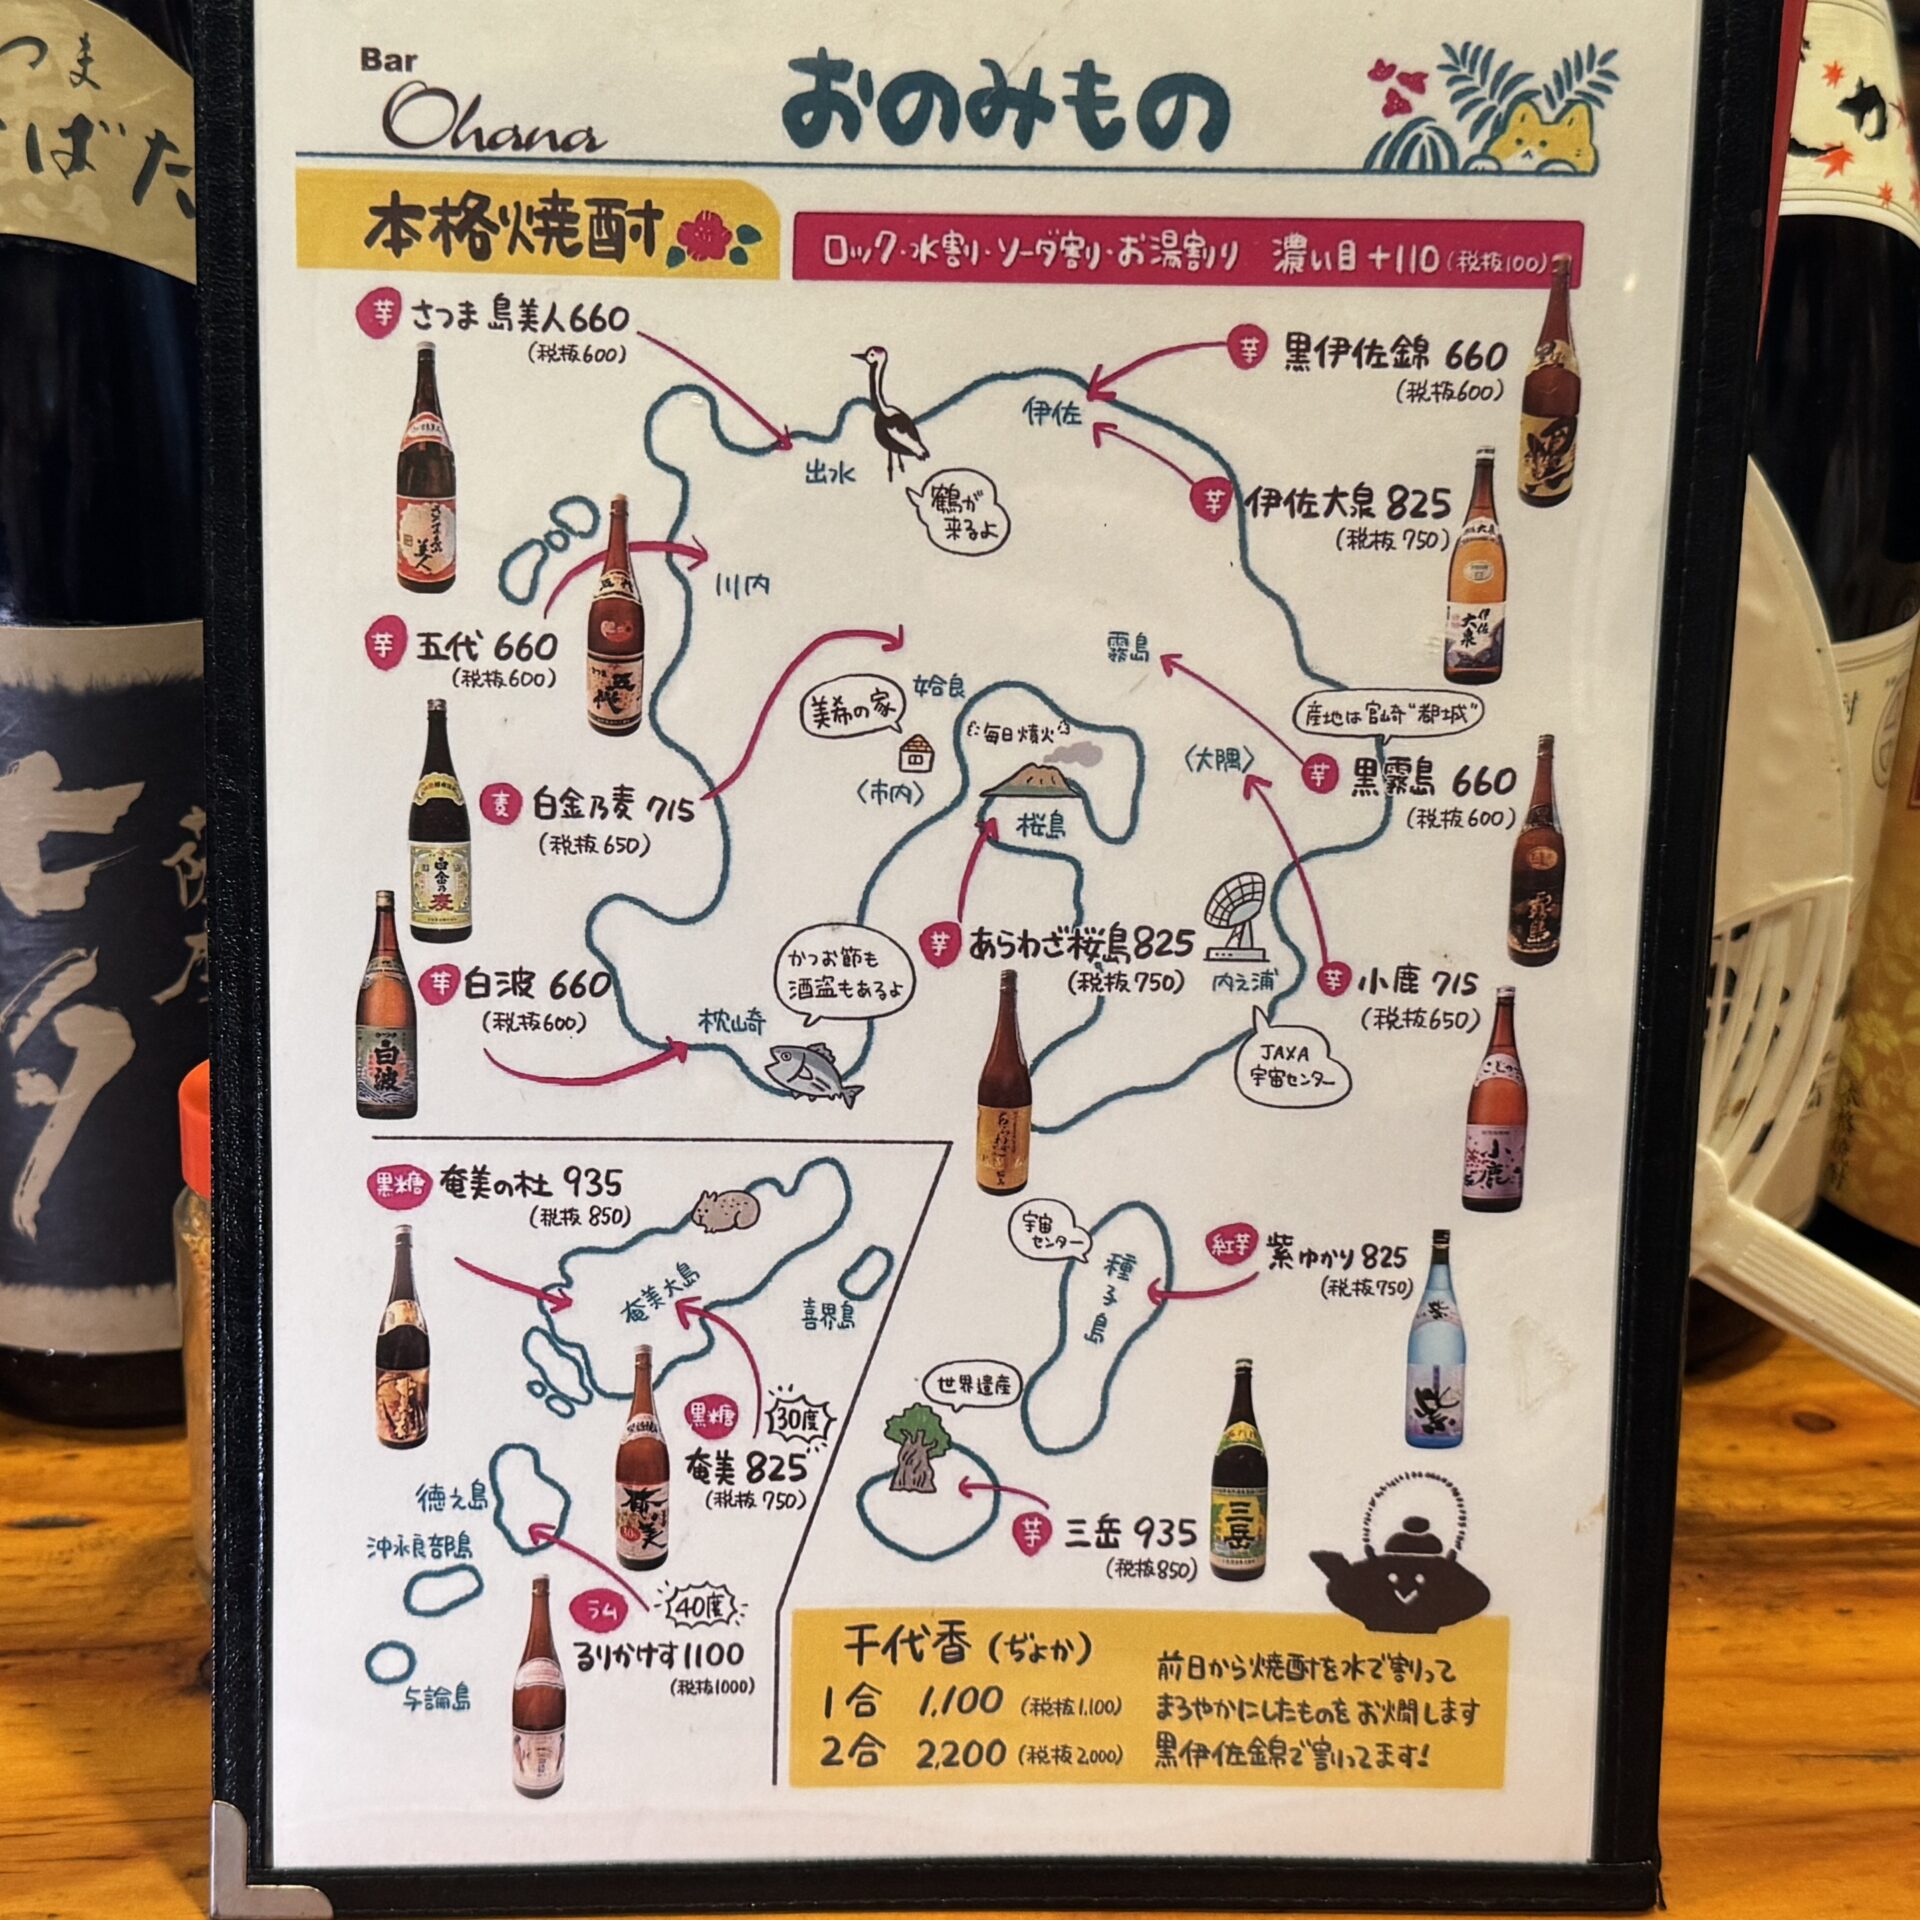 Bar
Ohana
おのみもの
本格焼酎
ロック・水割り・ソーダ割り・お湯割り 濃い目+110(税抜100)
芋 さつま島美人660
(税抜600)
芋 黒伊佐錦 660
(税抜600)
伊佐
出水
鶴が
来るよ
芋 伊佐大泉 825
(税抜750)
川内
芋 五代 660
(税抜600)
霧島
姶良
美希の家
〈市内〉
毎日噴火
桜島
〈大隅〉
産地は宮崎"都城"
芋 黒霧島 660
(税抜600)
麦 白金乃麦 715
(税抜650)
芋 白波 660
(税抜600)
かつお節も
酒盗もあるよ
枕崎
芋 あらわざ桜島825
(税抜750)
内之浦
JAXA
宇宙センター
芋 小鹿 715
(税抜650)
黒糖 奄美の杜 935
(税抜850)
奄美大島
喜界島
黒糖
30度
奄美 825
(税抜750)
徳之島
沖永良部島
与論島
ラム
40度
るりかけす1100
(税抜1000)
宇宙
センター
種子島
紅芋 紫ゆかり825
(税抜750)
世界遺産
芋 三岳 935
(税抜850)
千代香(ぢょか)
1合 1,100 (税抜1,100)
2合 2,200 (税抜2,000)
前日から焼酎を水で割って
まろやかにしたものをお燗します
黒伊佐錦で割ってます!
さつま島美人
五代
白金乃麦
白波
伊佐大泉
小鹿
紫
三岳
奄美